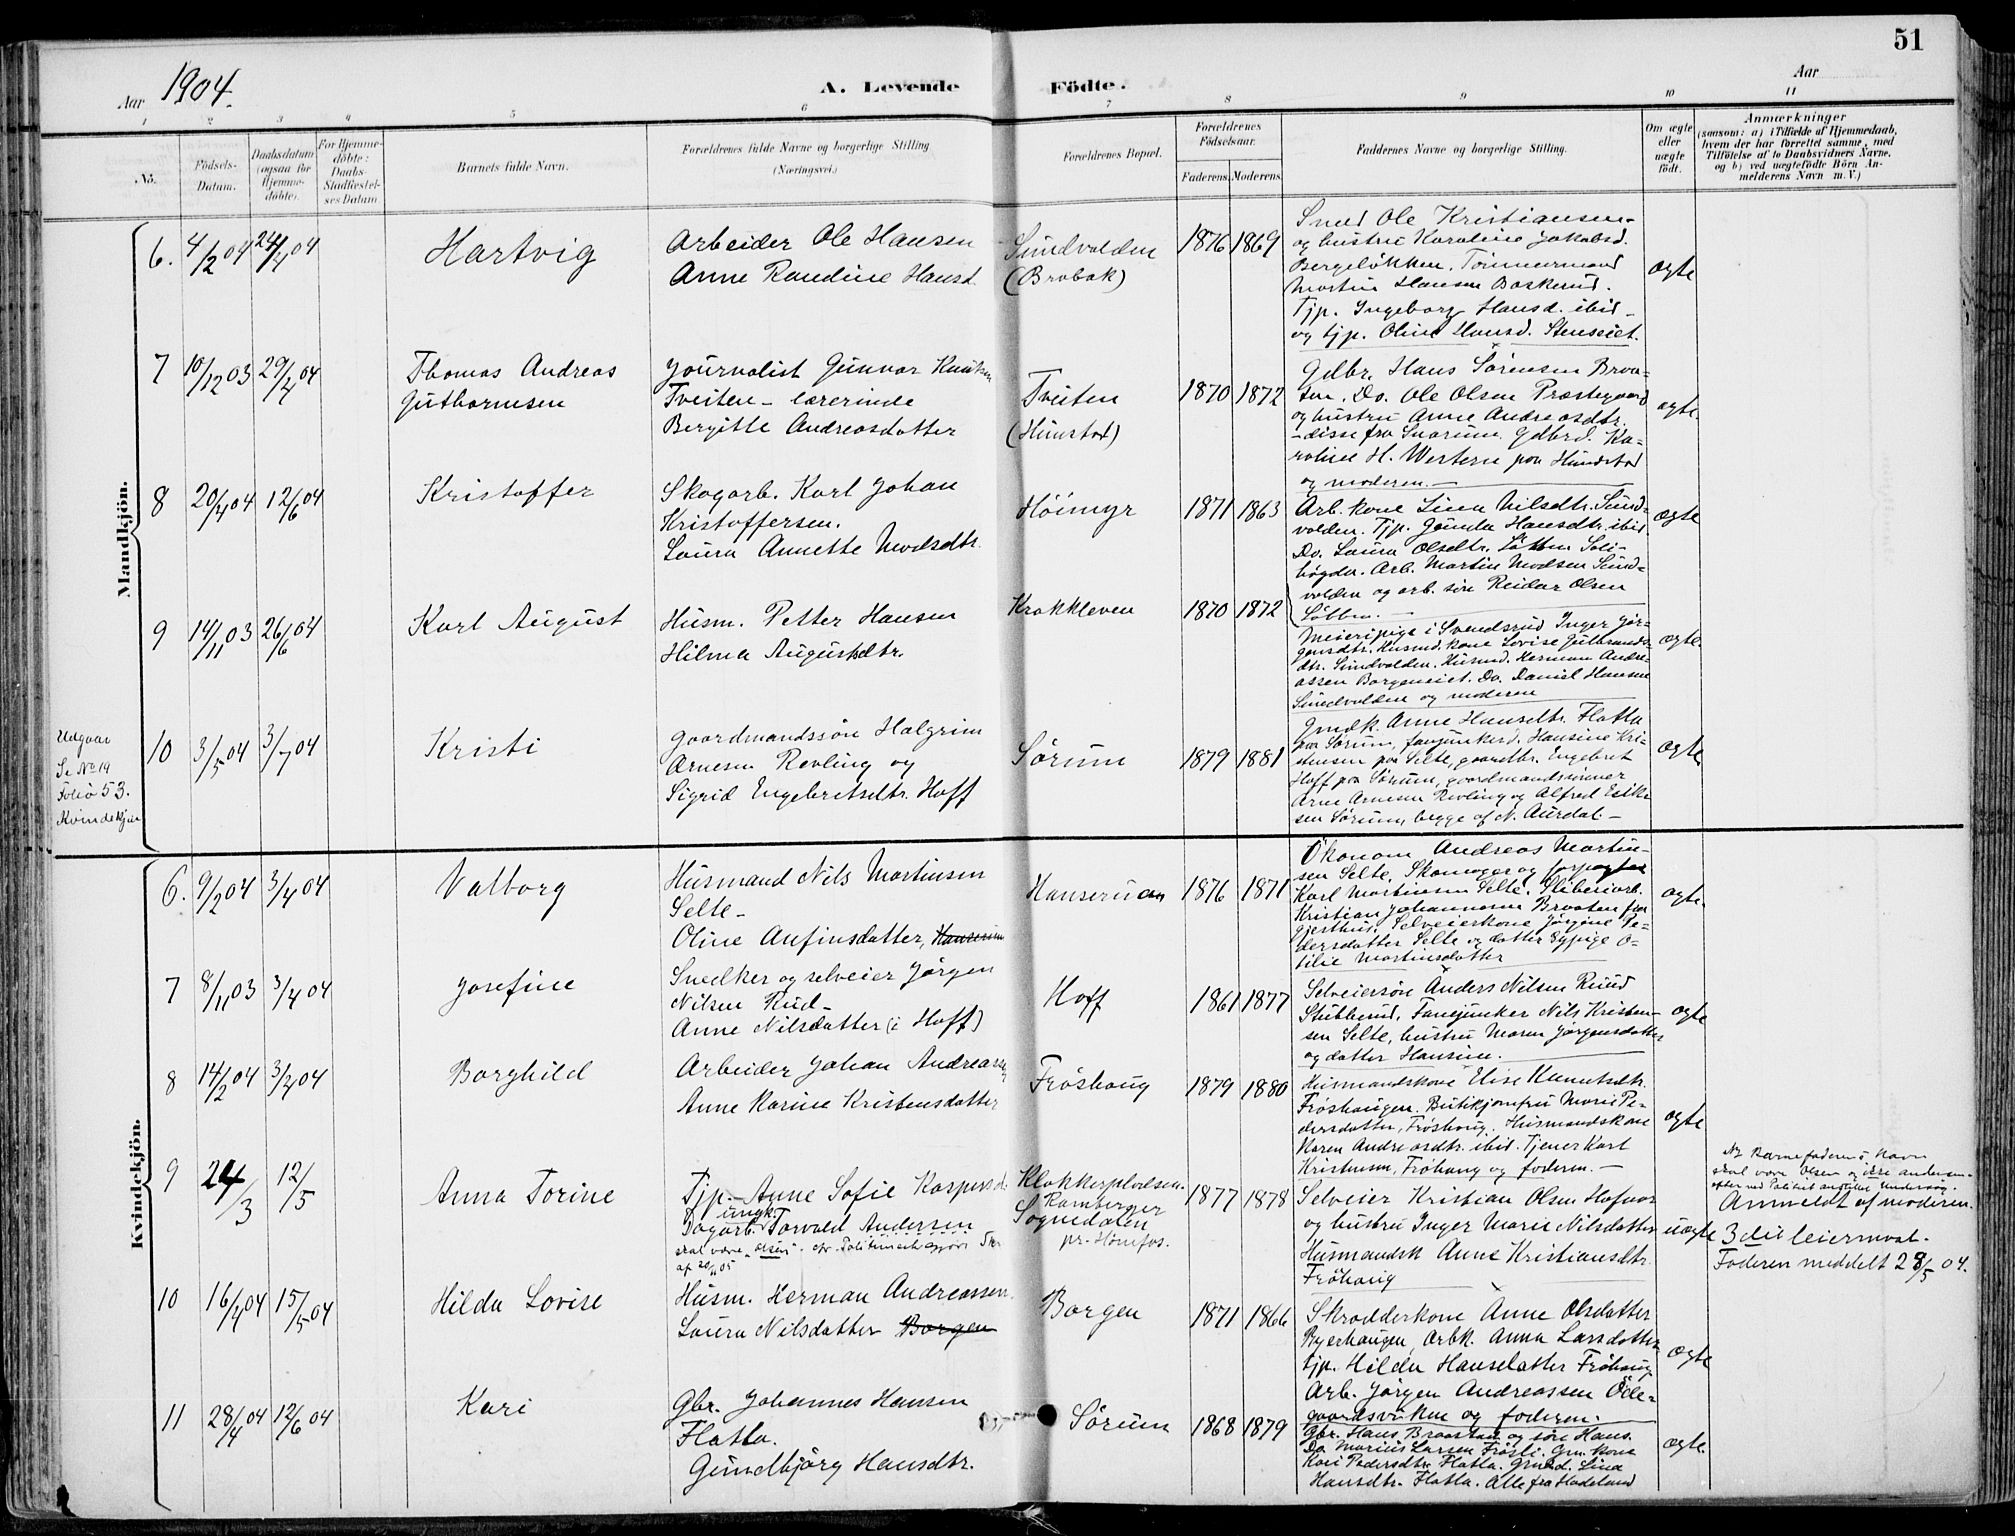 51
Aar 1904.
A. Levende Födte.
Aar
1 2 3 4 5 6 7 8 9 10 11
No.
Födsels-
Datum.
Daabsdatum
(ogsaa for
Hjemme-
döbte).
For Hjemme-
döbte:
Daabs-
Stadfæstel-
ses Datum
Barnets fulde Navn.
Forældrenes fulde Navne og borgerlige Stilling
(Næringsvei.)
Forældrenes Bopæl.
Forældrenes
Födselsaar.
Faderens. Moderens.
Faddernes Navne og borgerlige Stilling.
Om ægte
eller
uægte
födt.
Anmærkninger
(saasom: a) i Tilfælde af Hjemmedaab,
hvem der har forrettet samme, med
Tilföielse af to Daabsvidners Navne,
og b) ved uægtefödte Börn An-
melderens Navn m. V.)
Mandkjön.
6. 4/2 04 24/4 04
Hartvig
Arbeider Ole Hansen
Anne Randine Hansd.
Sundvolden
(Brobak)
1876 1869
Smed Ole Kristiansen
og hustru Karoline Jakobsd.
Bergeløkken. Tømmermand
Martin Hansen Baskerud.
Tjp. Ingeborg Hansd. ibid
og tjp. Oline Hansd. Stenseiet.
ægte
7 10/12 03 29/4 04
Thomas Andreas
Guthormsen
Journalist Gunnar Knutsen
Tveiten - lærerinde
Bergitte Andreasdatter
Tveiten
(Hunstad)
1870 1872
Gdbr. Hans Sørensen Braa-
ten. Do. Ole Olsen Præstegaard
og hustru Anne Andreasdtr.
- disse fra Snarum. Gdbrd. Ka-
roline H. Western paa Hundstad
og moderen.
ægte.
8 20/4 04 12/6 04
Kristoffer
Skogarb. Karl Johan
Kristoffersen.
Laura Annette Nilsdtr.
Høimyr
1871 1863
Arb. kone Lina Nilsdtr. Sund-
volden. Tjp. Gunda Hansdtr. ibid.
Do. Laura Olsdtr. Løtten Soli-
høgda. Arb. Martin Nilsen Sund-
volden og arb. søn Reidar Olsen
Løtten.
ægte
9 14/11 03 26/6 04
Karl August
Husm. Petter Hansen
Hilma Augustsdtr.
Krokkleven
1870 1872
Meieripige i Svendsrud Inger Jør-
gensdtr. Husmd. kone Lovise Gulbrands-
dtr. Sundvolden. Husmd. Herman Andre-
assen Borgeneiet. Do. Daniel Hansen
Sundvolden og moderen
ægte.
Udgaar
Se No 14
Folio 53.
Kvindekjøn
10 3/5 04 3/7 04
Kristi
Gaardmandssøn Halgrim
Arnesen Revling og
Sigrid Engebretsdtr. Hoff
Sørum
1879 1881
Gmdk. Anne Hansdtr. Flatla
paa Sørum, fanejunkerd. Hansine Kri-
stensen paa Selte, gaardbr. Engebret
Hoff paa Sørum, gaardmandssønner
Arne Arnesen Revling og Alfred Erik-
sen Sørum, begge af N. Aurdal.
ægte
Kvindekjön.
6. 9/2 04 3/4 04
Valborg
Husmand Nils Martinsen
Selte -
Oline Anfinsdatter,
Hanserud
1876 1871
Økonom Andreas Martin-
sen Selte. Skomager og forpagter
Karl Martinsen Selte. Sliberiarb.
Kristian Johannesen Braaten fra
Gjerthus. Selveierkone Jørgine Pe-
dersdatter Selte og datter sypige O-
tilie Martinsdatter
ægte.
7 8/11 03 3/4 04
Josefine
Snedker og selveier Jørgen
Nilsen Rud -
Anne Nilsdatter (i Hoff)
Hoff
1861 1877
Selveiersøn Anders Nilsen Ruud
Stubberud, Fanejunker Nils Kristen-
sen Selte, hustru Maren Jørgensdatter
og datter Hansine.
ægte
8 14/2 04 3/4 04
Borghild
Arbeider Johan Andreassen
Anne Karine Kristensdatter
Frøshaug
1879 1880
Husmandskone Elise Knutsdtr.
Frøshaugen. Butikjomfru Marie Pe-
dersdatter, Frøshaug. Husmandskone
Karen Andreasdtr. ibid. Tjener Karl
Kristensen, Frøhaug og faderen.
ægte
9 24/3 12/5
Anna Torine
Tjp. Anne Sofie Kaspersd.
ungk.
Dagarb. Torvald Andersen
skal være „Olsen“
af 20/11 05
Klokkerpladsen.
Ramberger
Sognedalen
pr. Hønefos.
1877 1878
Selveier Kristian Olsen Hofmoe
og hustru Inger Marie Nilsdatter
Husmandsk Anne Kristiansdtr.
Frøhaug
uægte
Nb. Barnefaderens Navn
skal være Olsen og ikke Andersen
efter ved Politiet anstillet Undersøg.
Anmeldt af moderen.
3die leiermaal.
Faderen meddelt 28/5 04.
10 16/4 04 15/5 04
Hilda Lovise
Husm. Herman Andreassen.
Laura Nilsdatter Borgen
Borgen
1871 1866
Skrædderkone Anne Olsdatter
Byerhaugen, Arbk. Anna Larsdatter
tjp. Hilda Hansdatter Frøhaug
Arb. Jørgen Andreassen Øde-
gaardsviken og faderen.
ægte
11 28/4 04 12/6 04
Kari
Gbr. Johannes Hansen
Flatla.
Gundbjørg Hansdtr.
Sørum
1868 1879
Gbr. Hans Braastad og søn Hans.
Do Marius Larsen Frøsli. Gm. kone
Kari Pedersdtr. Flatla. Gmd. Lina
Hansdtr. Flatla. Alle fra Hadeland
ægte.